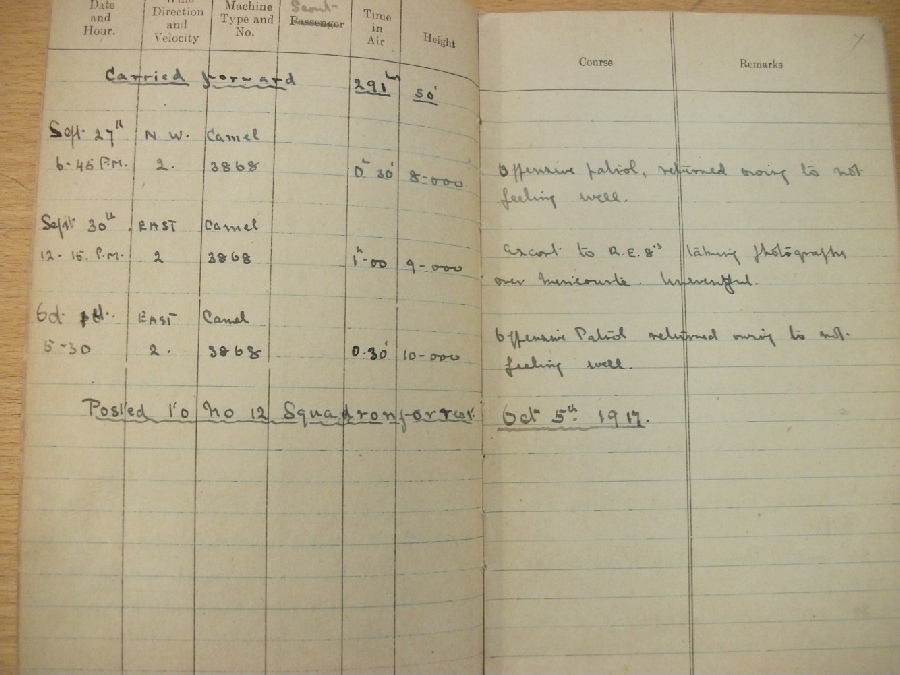 Date and Hour. Direction and Velocity Machine Type and No. Scout Passenger Time in Air Height Course Remarks
Carried forward 291 hrs 50'
Sept 27th N W. Camel
6-45 P.M. 2. 3868 0h 30' 8-000 Offensive patrol, returned owing to not
feeling well.
Sept 30th EAST Camel
12-15. P.M. 2 3868 1h-00 9-000 Escort to R.E.8's taking photographs
over Mericourt. Uneventful.
Oct EAST Camel
5-30 2. 3868 0.30' 10-000 Offensive Patrol returned owing to not
feeling well.
Posted to No 12 Squadron for rest. Oct 5th 1917.